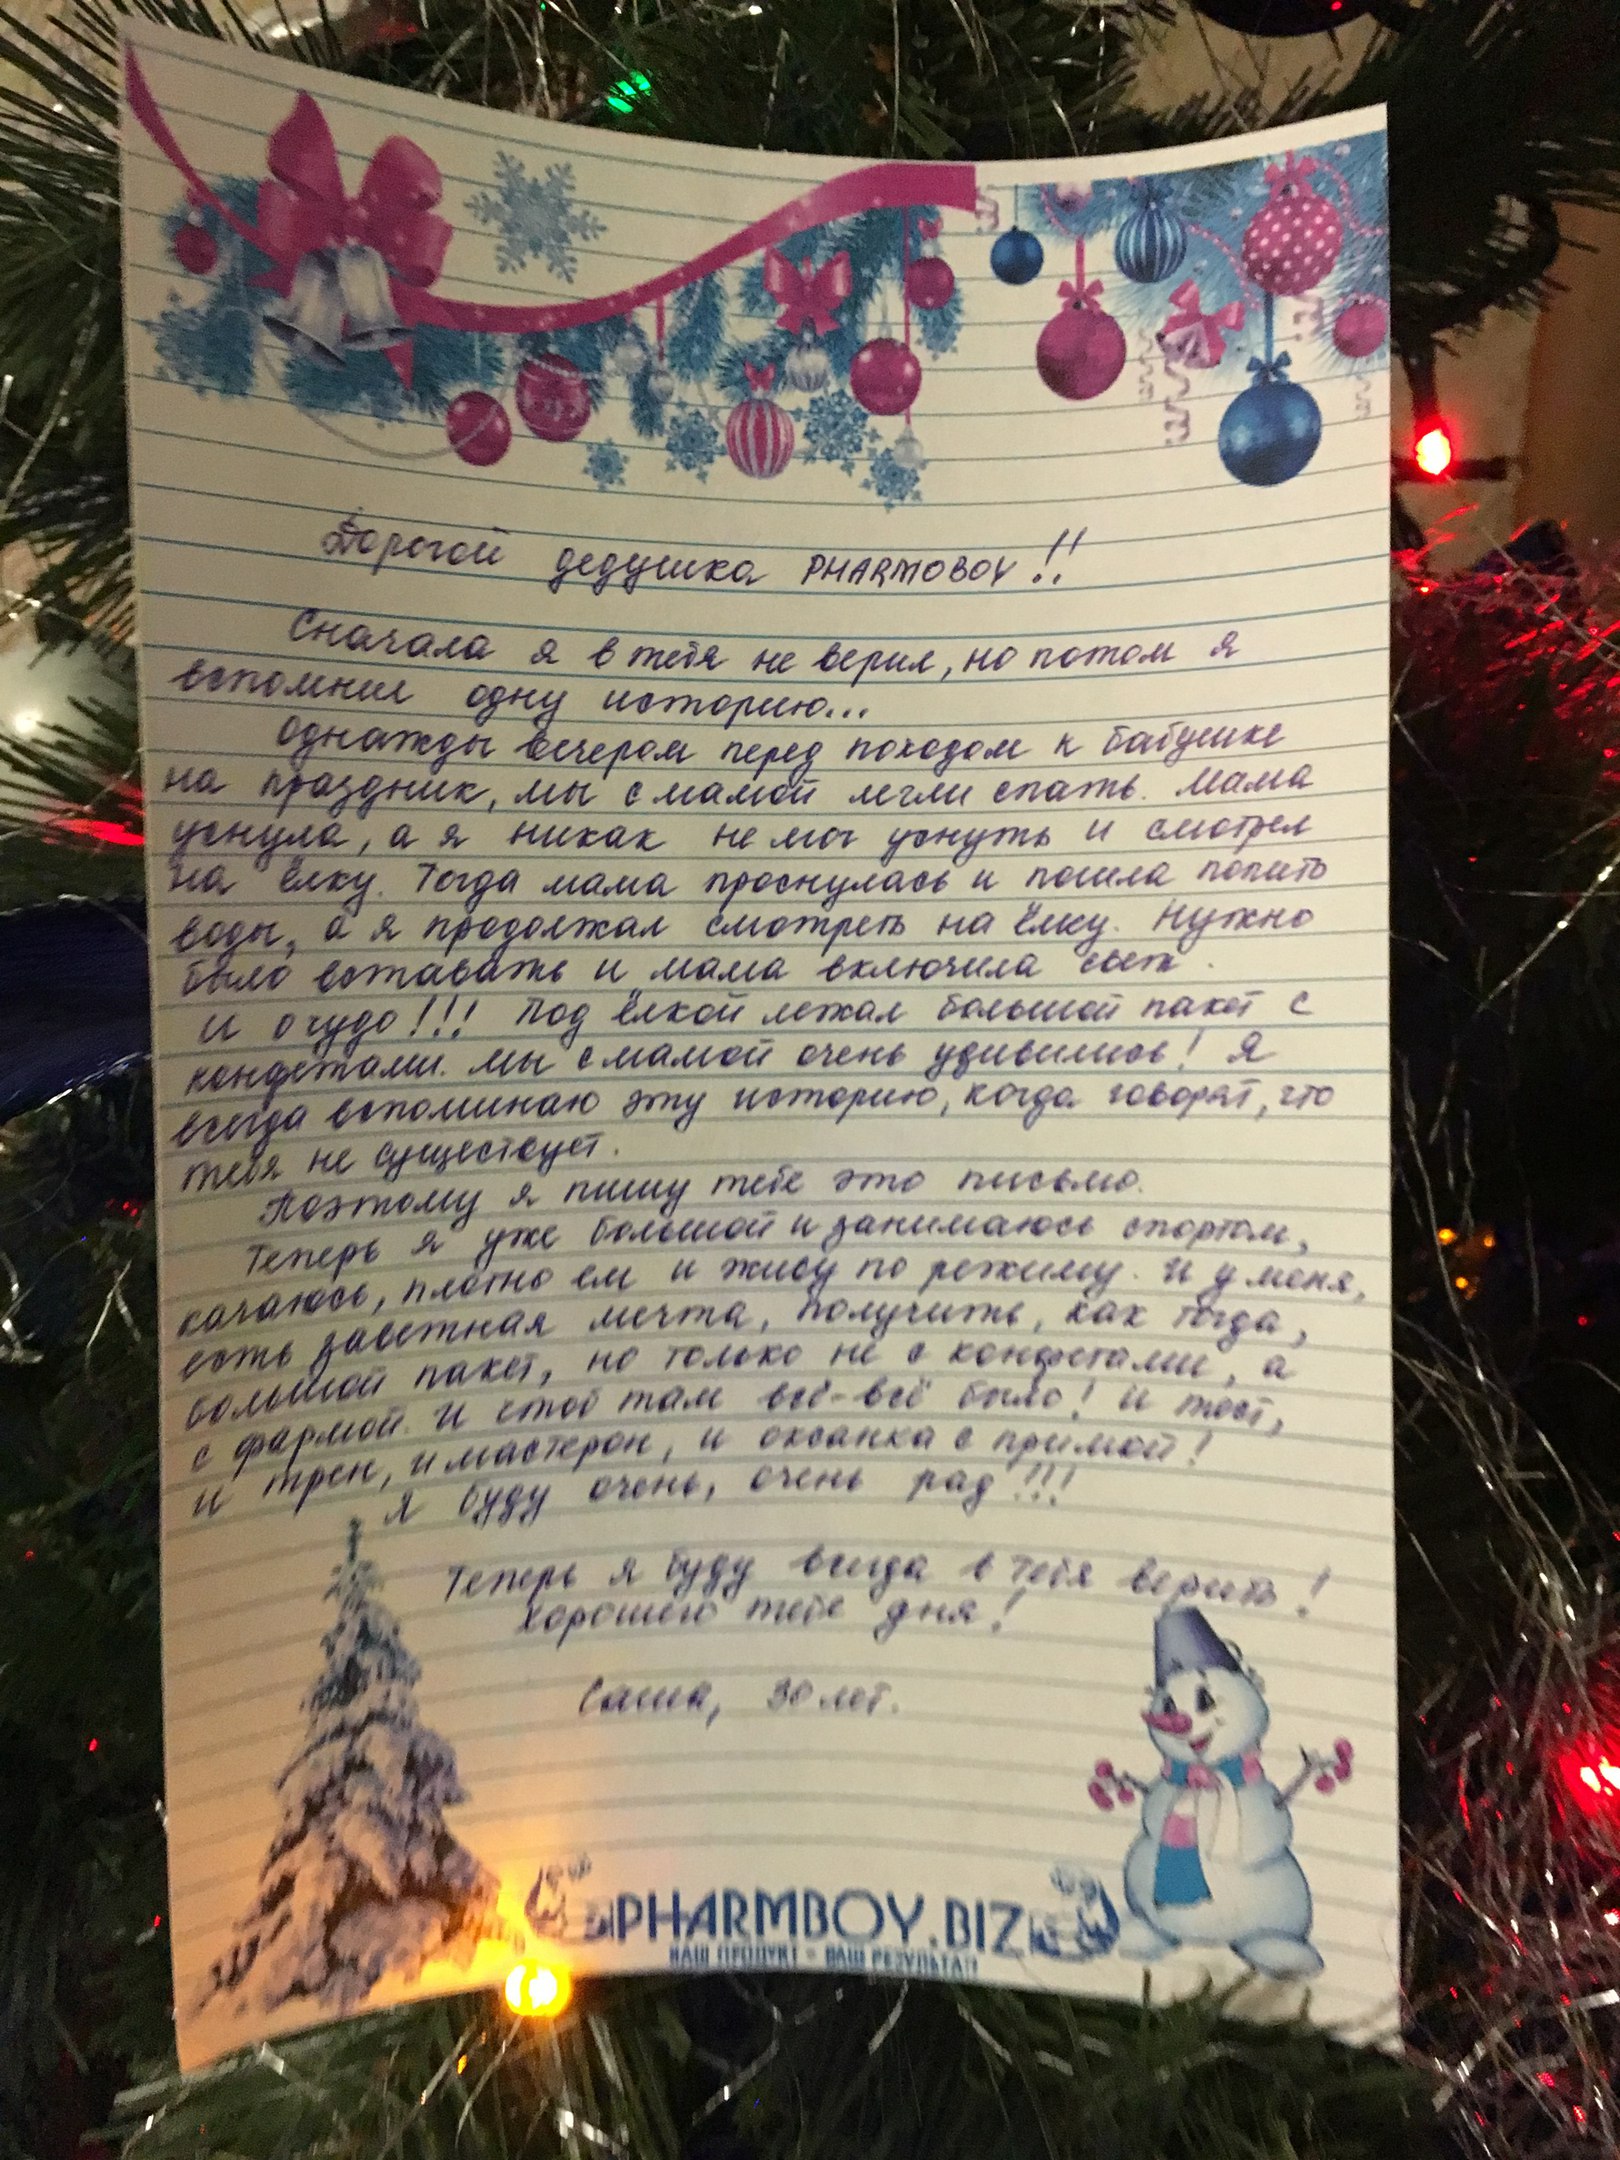 Дорогой дедушка PHARMOBOY!!
Сначала я в тебя не верил, но потом я
вспомнил одну историю...
Однажды вечером перед походом к бабушке
на праздник, мы с мамой легли спать. Мама
уснула, а я никак не мог уснуть и смотрел
на ёлку. Тогда мама проснулась и пошла попить
воды, а я продолжал смотреть на ёлку. Нужно
было вставать и мама включила свет.
И о чудо!!! Под ёлкой лежал большой пакет с
конфетами. Мы с мамой очень удивились! Я
всегда вспоминаю эту историю, когда говорят, что
тебя не существует.
Поэтому я пишу тебе это письмо.
Теперь я уже большой и занимаюсь спортом,
качаюсь, плотно ем и живу по режиму. И у меня,
есть заветная мечта, получить, как тогда,
большой пакет, но только не с конфетами, а
с фармой. И чтоб там всё-всё было! И тест,
и трен, и мастерон, и оксанка с примой!
Я буду очень, очень рад!!!
Теперь я буду всегда в тебя верить!
Хорошего тебе дня!
Саша, 30 лет.
PHARMBOY.BIZ
ВАШ ПРОДУКТ - ВАШ РЕЗУЛЬТАТ